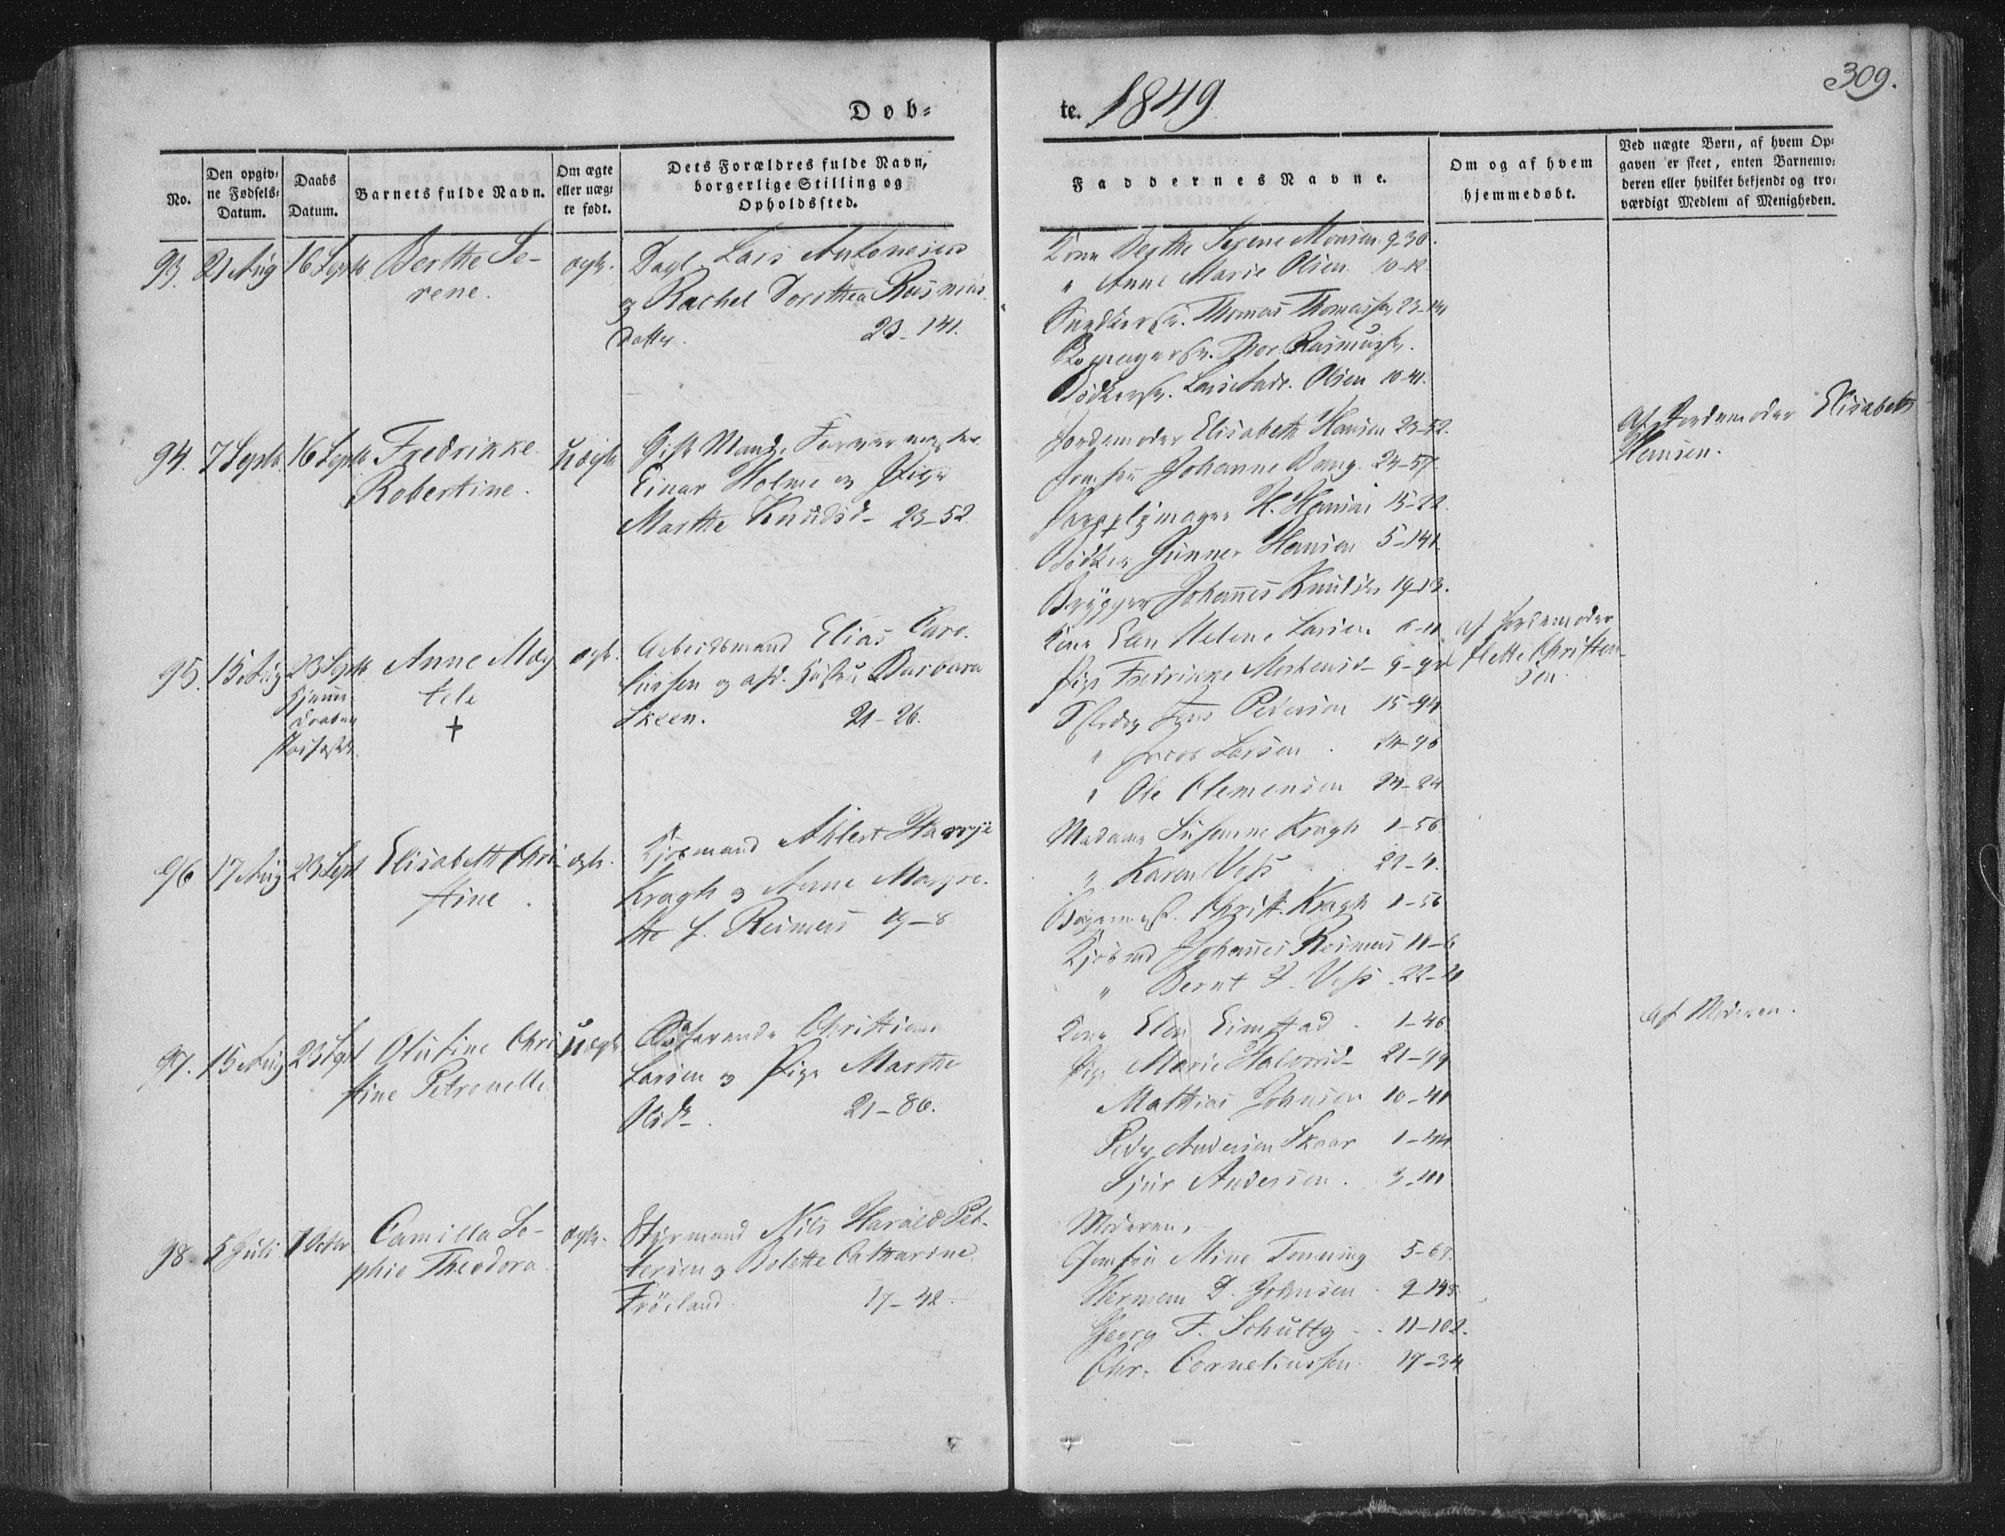 309.
Døb=
te. 1849
No.
Den opgiv=
ne Fødsels=
Datum.
Daabs
Datum.
Barnets fulde Navn.
Om ægte
eller uæg=
te født.
Dets Forældres fulde Navn,
borgerlige Stilling og
Opholdssted.
Faddernes Navne.
Om og af hvem
hjemmedøbt.
Ved uægte Børn, af hvem Op=
gaven er skeet, enten Barnemo=
deren eller hvilket bekjendt og tro=
værdigt Medlem af Menigheden.
93. 21 Aug 16 Septb Berthe Se-
rene.
ægte.
Dagl. Lars Antonesen
og Rachel Dorothea Rasmus
datter. 23-141.
Kone Berthe Serene Monsen 9.30.
" Anne Marie Olsen 10-12
Thomas Thomassen 23-141
Thor Rasmussen.
Olsen 10-41.
94. 7 Septb 16 Septb Fredrikke
Robertine.
uægte
Gift Mand,
Einar Holme og Pige
Marthe Knudsd- 23-52
Jordemoder Elisabeth Hansen 23-52.
Jomfru Johanne Bang. 24-57
H. Hansen 15-22.
Bødker Gunner Hansen 5-141
Brygger Johannes Knudsen 19-13.
Af Jordemoder Elisabeth
Hansen.
95. 15 Aug 23 Septb Anne Mag
tele
+
Hjemme
døbt
ægte.
Arbeidsmand Elias Care-
liussen og Hustru Barbara
Skeen. 21-26.
Kone Elen Helene Larsen 6-11
Pige Fredrikke Mortensd- 9-92
Jens Pedersen 15-94
" Jacob Larsen. 14-96
" Ole Clemensen 24-24
af Jordemoder
Mette Christen-
sen
96 17 Aug 23 Sept Elisabeth Chri
stine.
ægte.
Kjøbmand Ahlert Harrye
Kragh og Anne Margre-
the f. Reimers 19-8
Madame Susanne Kragh 1-56
" Karen Vess 22-4.
Christ. Kragh 1-56
Kjøbmd Johannes Reimers 18-6
" Bernt F. Vess. 22-21
97. 15 Aug 23 Sept Olutine Chri
stine Petronelle
uægte
Christian
Larsen og Pige Marthe
Olsd-. 21-86.
Kone Elen Eimstad. 1-46
Pige Marie Halvorsd- 21-49
Mathias Johnsen 10-41
Peder Andersen Skaar 1-144
Sjur Andersen. 3-101
Af Moderen.
98 5 Juli 7 Octbr Camilla So-
phie Theodora
ægte.
Styrmand Nils Harald Pet-
tersen og Bolette Catharine
Frøeland. 17-42.
Moderen,
Jomfru Mine Tonning 5-67
Herman D. Johnsen. 9-145.
Georg F. Schultz. 11-102.
Chr. Corneliussen. 17-34